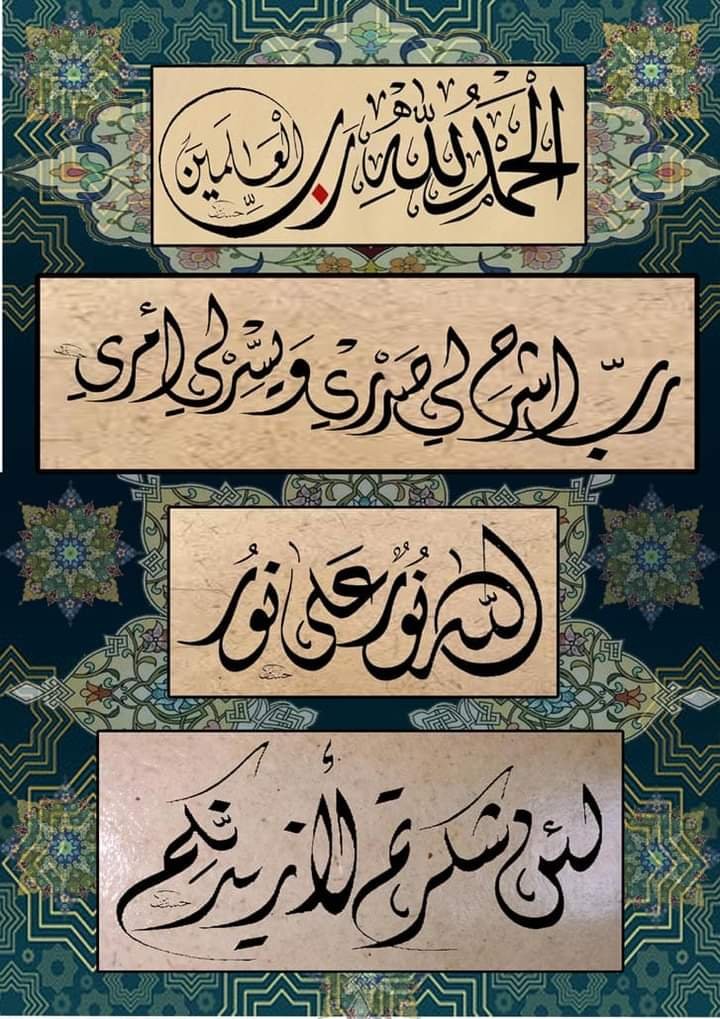 الْحَمْدُ لِلّٰهِ رَبِّ الْعَالَمِينَ
رَبِّ اشرح لي صَدْرِي وَيَسِّرْ لِي أمرِي
اللّٰه نُورٌ عَلى نُورُ
لئن شكرتم لأزيدنَّكم